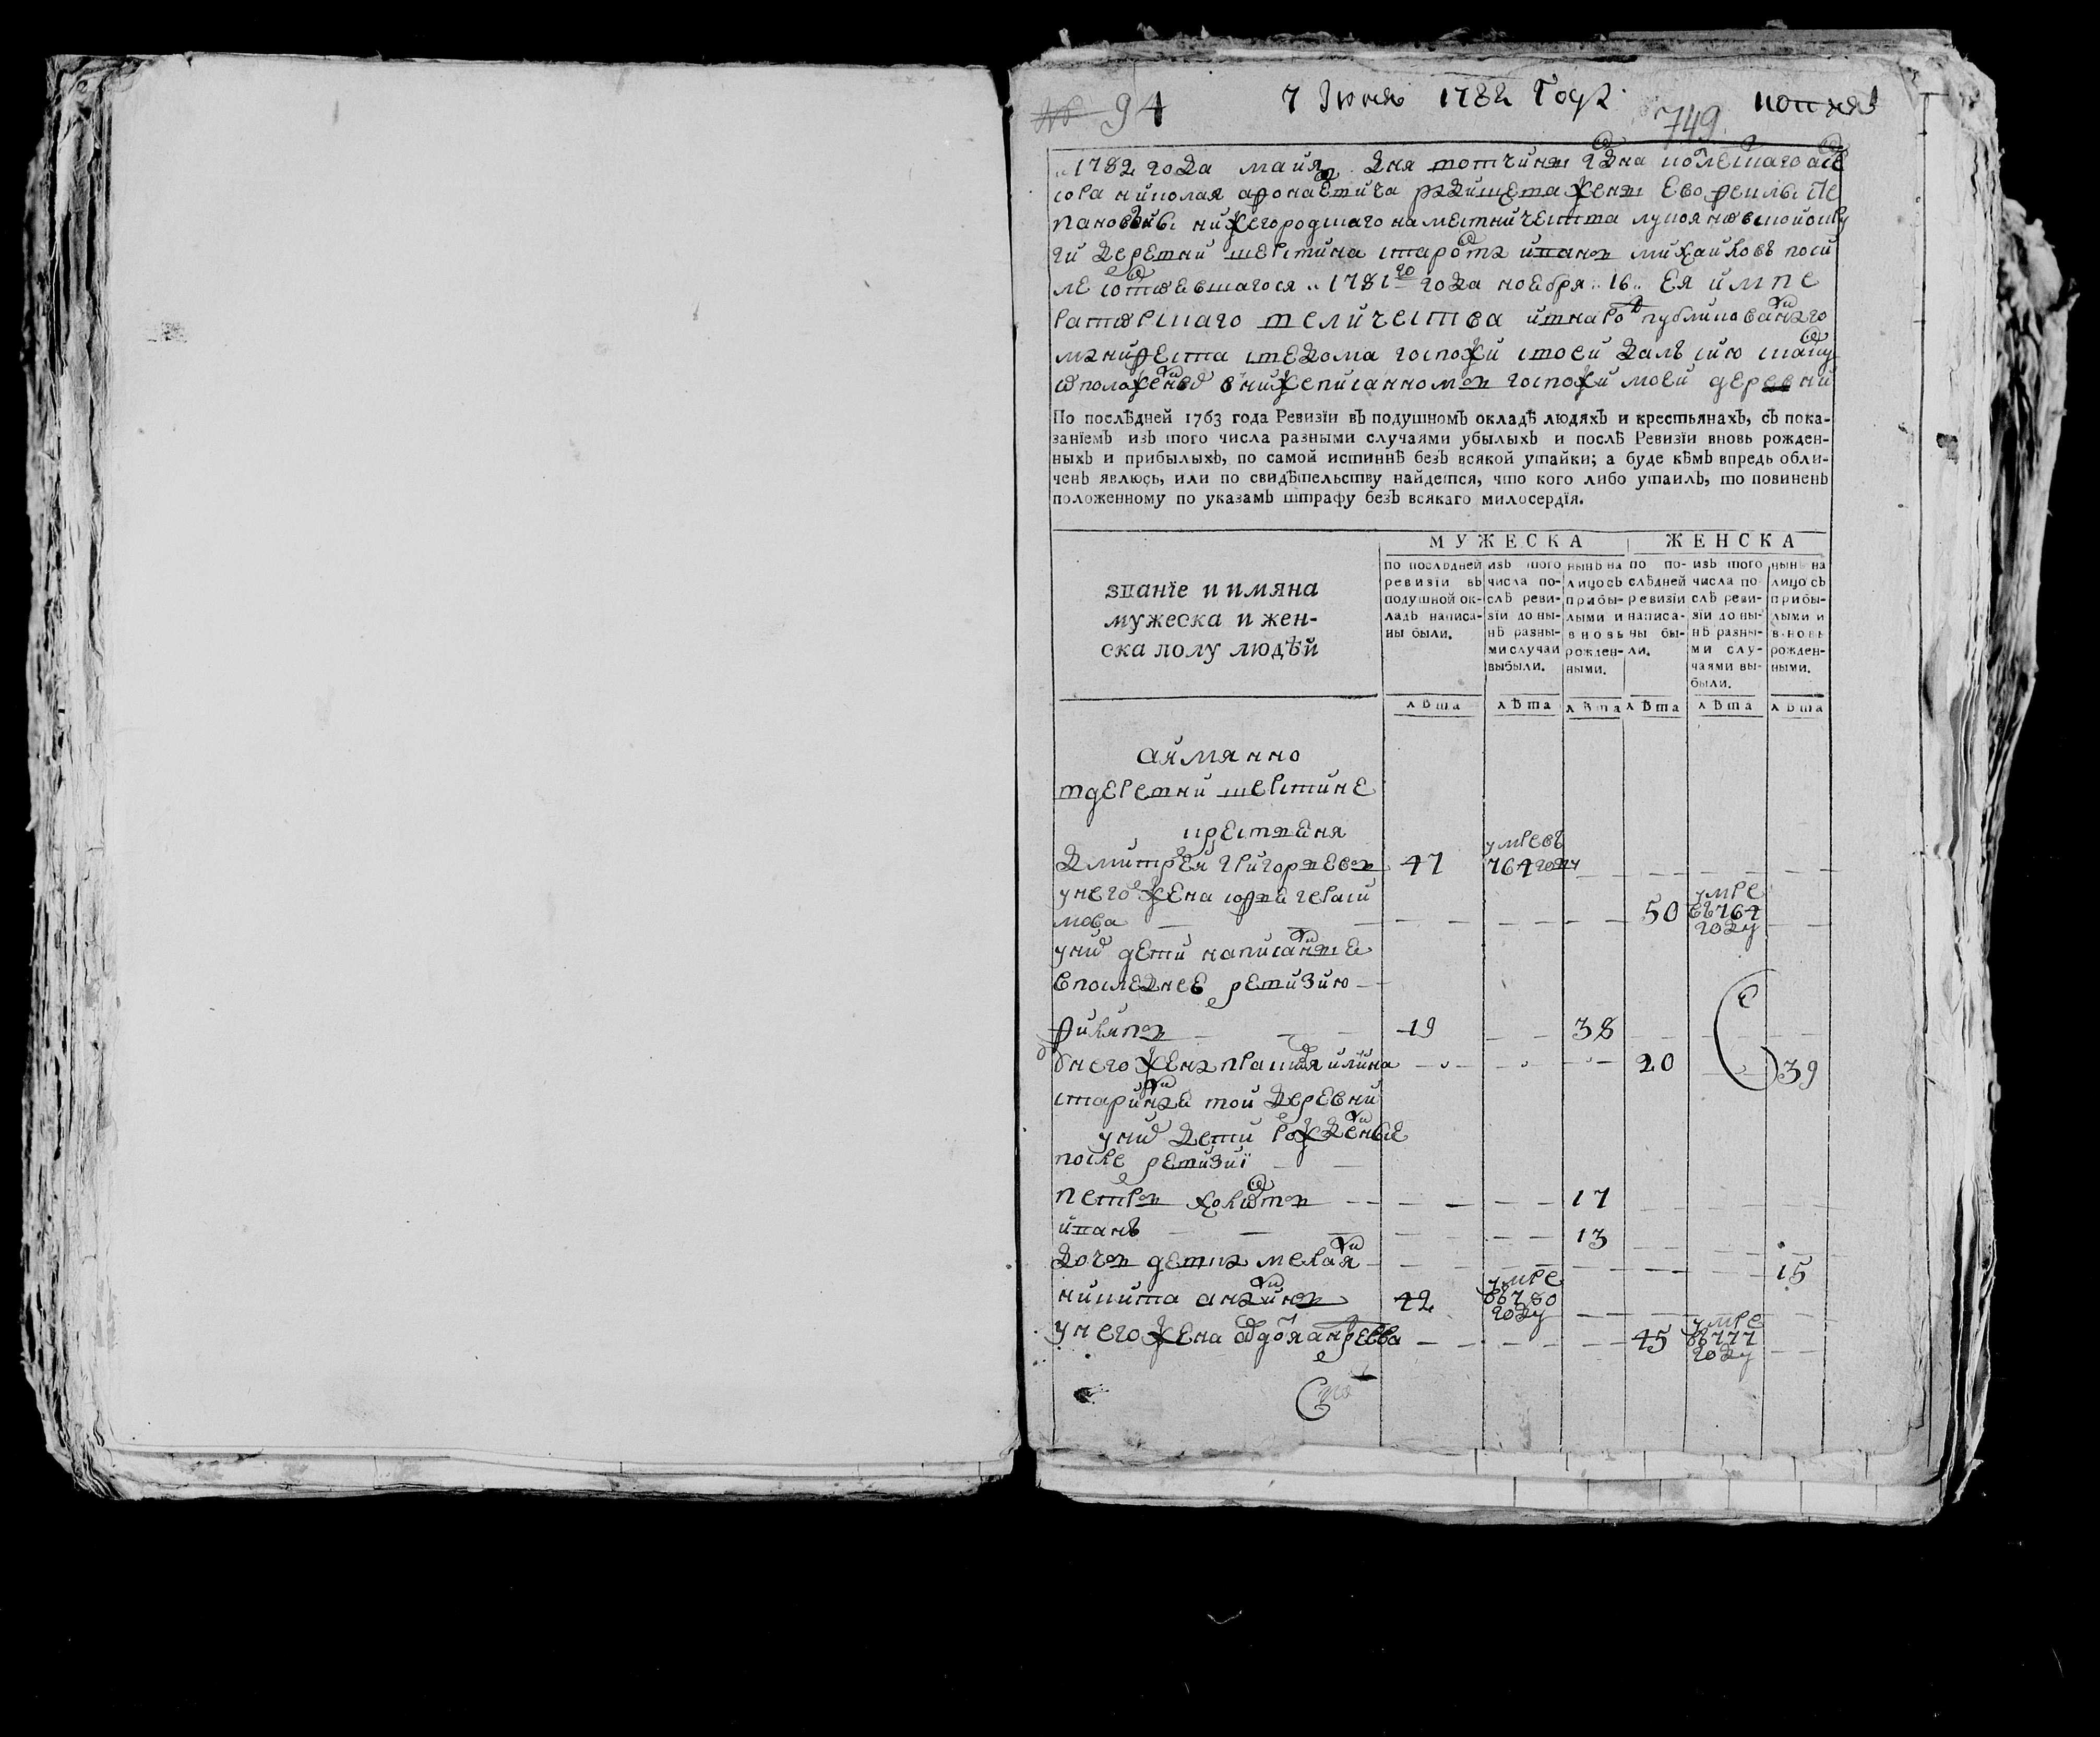 № 94 7 Июня 1782 Году
749
1782 года майя дня вотчины г҃дна колескаго асе
сора николая афонасевича радищева жены ево феклы сте
пановны нижегородскаго наместничества лукояновской окру
ги деревни шерстина староста иванъ михайловъ по си
ле состоявшагося 1781го года ноебря 16 ея импе
раторскаго величества внарод публикованаго
манифеста сведома госпожи своей далъ сию скаску
ѡположеных внижеписанномъ госпожи моей деревни
По послѣдней 1763 года Ревизїи въ подушномъ окладѣ людяхъ и крестьянахъ, съ пока-
занїемъ изъ того числа разными случаями убылыхъ и послѣ Ревизїи вновь рожден-
ныхъ и прибылыхъ, по самой истиннѣ безъ всякой утайки; а буде кѣмъ впредь обли-
ченъ явлюсь, или по свидѣтельству найдется, что кого либо утаилъ, то повиненъ
положенному по указамъ штрафу безъ всякаго милосердїя.
МУЖЕСКА ЖЕНСКА
званїе и имяна
мужеска и жен-
ска полу людѣй
по послѣдней
ревизїи въ
подушной ок-
ладъ написа-
ны были.
изъ того
числа по-
слѣ реви-
зїи до ны-
нѣ разны-
ми случаи
выбыли.
нынѣ на
лицо съ
прибы-
лыми и
вновь
рожден-
ными.
по по-
слѣдней
ревизїи
написа-
ны бы-
ли.
изъ того
числа по
слѣ реви-
зїи до ны-
нѣ разны-
ми слу-
чаями вы-
были.
нынѣ на
лицо съ
прибы-
лыми и
вновь
рожден-
ными.
лѣта лѣта лѣта лѣта лѣта лѣта
аимянно
вдеревни шерстине
крестьяня
Дмитрей григорьевъ 47 умре въ 764 году
у него жена софья гераси
мова 50 умре въ 764 году
у них дети написаные
в последнее ревизию
филипъ 19 38
у него жена прасковя илина 20 39
стариная той деревни
у них дети рожденые
после ревизиї
петръ холостой 17
иванъ 13
дочь девка мелания 15
никита ананинъ 42 умре въ 780 году
у него жена авдотя андреева 45 умре въ 777 году